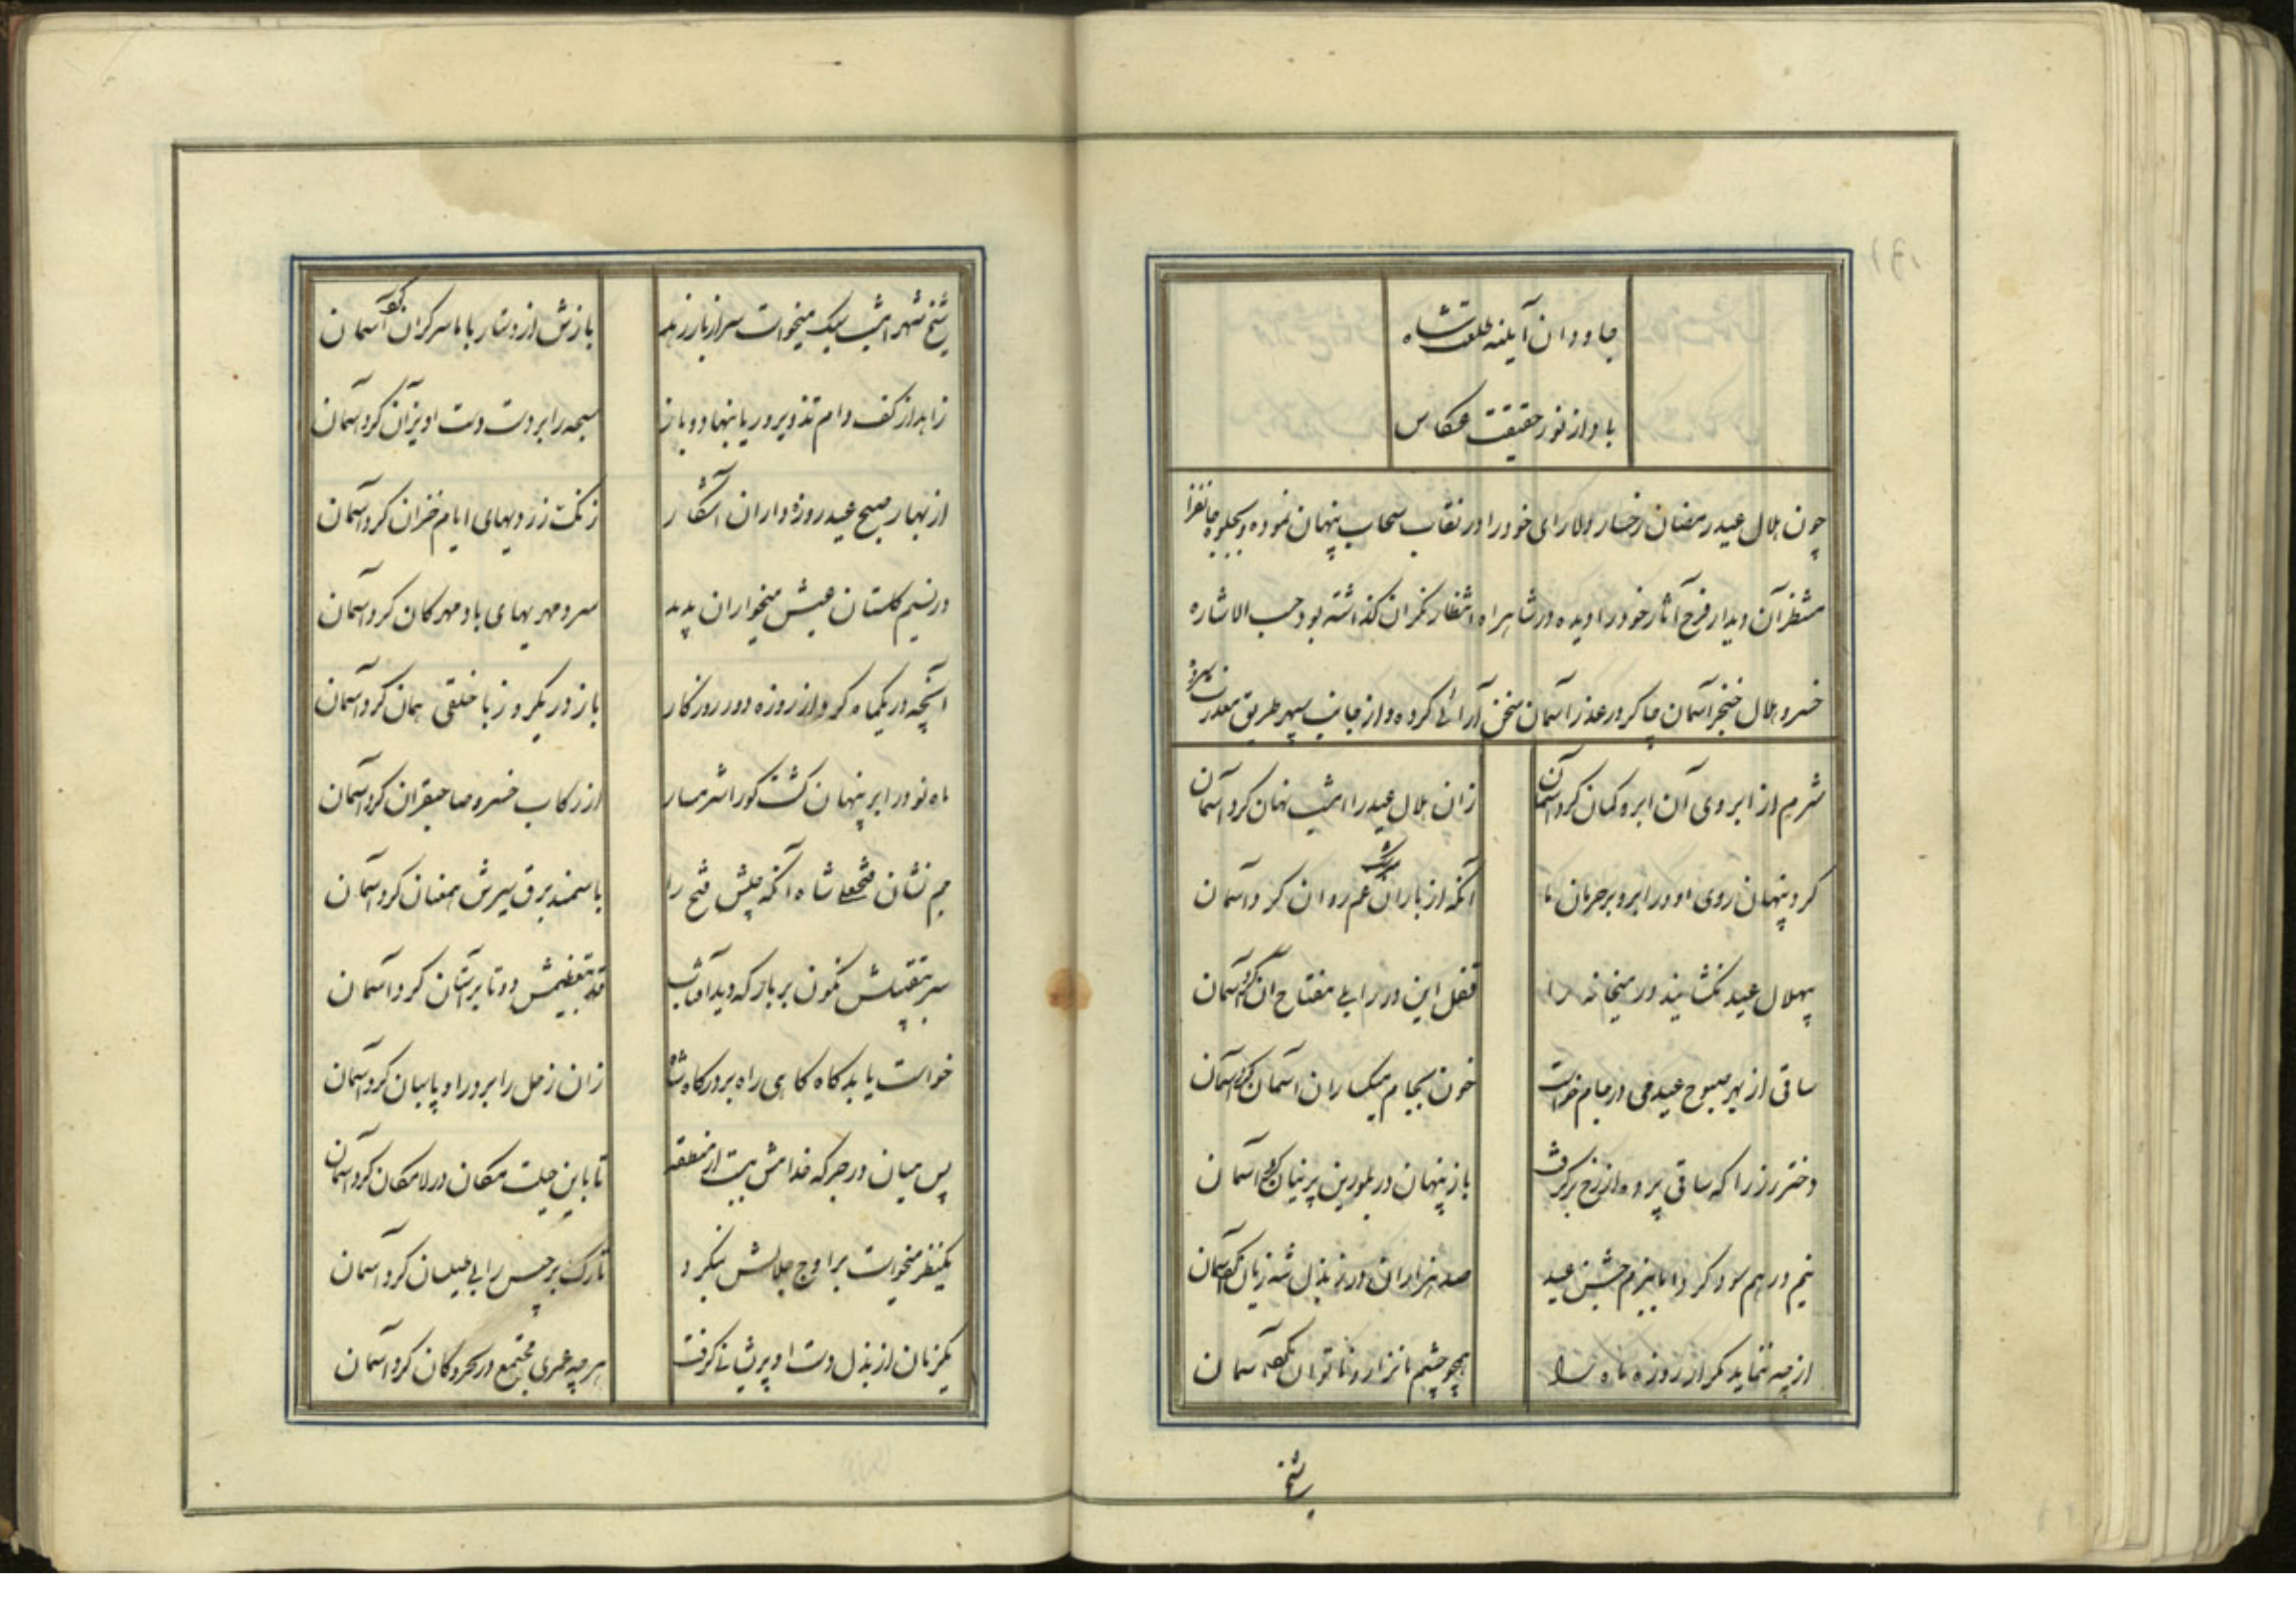 جاودان آینه طلعت شاه
باد از نور حقیقت عکاس
چون هلال عید رمضان رخسار دلارای خود را در نقاب سحاب پنهان نموده و بجلوه جانفزا
منتظر آن دیدار فرح آثار خود را دیده در شاهراه انتظار نکران کذاشته بود حسب الاشاره
خسرو هلال خنجر آسمان چاکر در عذر آسمان سخن آرائی کرده و از جانب سپهر طریق معذرت سپرد
شرم از ابروی آن ابرو کمان کرد آسمان زان هلال عید را امشب نهان کرد آسمان
کرد پنهان روی او در ابر و بر حرمان ما آنکه از باران سرشک غم روان کرد آسمان
بیهلال عید نکشایند در میخانه را قفل این در را بی مفتاح آن کرد آسمان
ساقی از بهر صبوح عید می در جام خواست خون بجام میکساران آسمان کرد آسمان
دختر رز را که ساقی پرده از رخ برکرفت باز پنهان در بلورین پرنیان کرد آسمان
نیم درهم سود کرد اما ببزم جشن عید صد هزاران در ز بذل شه زیان کرد آسمان
از چه ننماید مکر از روزه ماه را همچو چشم ما نزار و ناتوان کرد آسمان
شیخ
شیخ شهر امشب سبک میخواست سر از بار زهد بازش از دستار با ما سرکران کرد آسمان
زاهد از کف دام تذویر و ریا بنهاد و باز سبحه را بر دست دست اویزان کرد آسمان
از بهار صبح عید روزه داران آشکار رنکت زردیهای ایام خزان کرد آسمان
در نسیم کلستان عیش میخواران پدید سرد مهریهای باد مهرکان کرد آسمان
آنچه در یکماه کرد از روزه دور روزکار باز در یکروز با خلقی همان کرد آسمان
ماه نو در ابر پنهان کشت کورا شرمسار از رکاب خسرو صاحبقران کرد آسمان
جم نشان فتحعلی شاه آنکه جیش فتح را با سمند برق سیرش همعنان کرد آسمان
سر بتقبیلش نکون بر بار که دید آفتاب قد بتعظیمش دو تا بر آستان کرد آسمان
خواست یابد کاه کاهی راه بر درکاه شاه زان زحل را بر در او پاسبان کرد آسمان
پس میان در جرکه خدامش بست از منطقه تا باین حیلت مکان در لامکان کرد آسمان
یکنظر میخواست بر اوج جلالش بنکرد تارک برجیس را بی طیلسان کرد آسمان
یکزمان از بذل دست او پریشانی کرفت هر چه عمری مجتمع در بحر و کان کرد آسمان